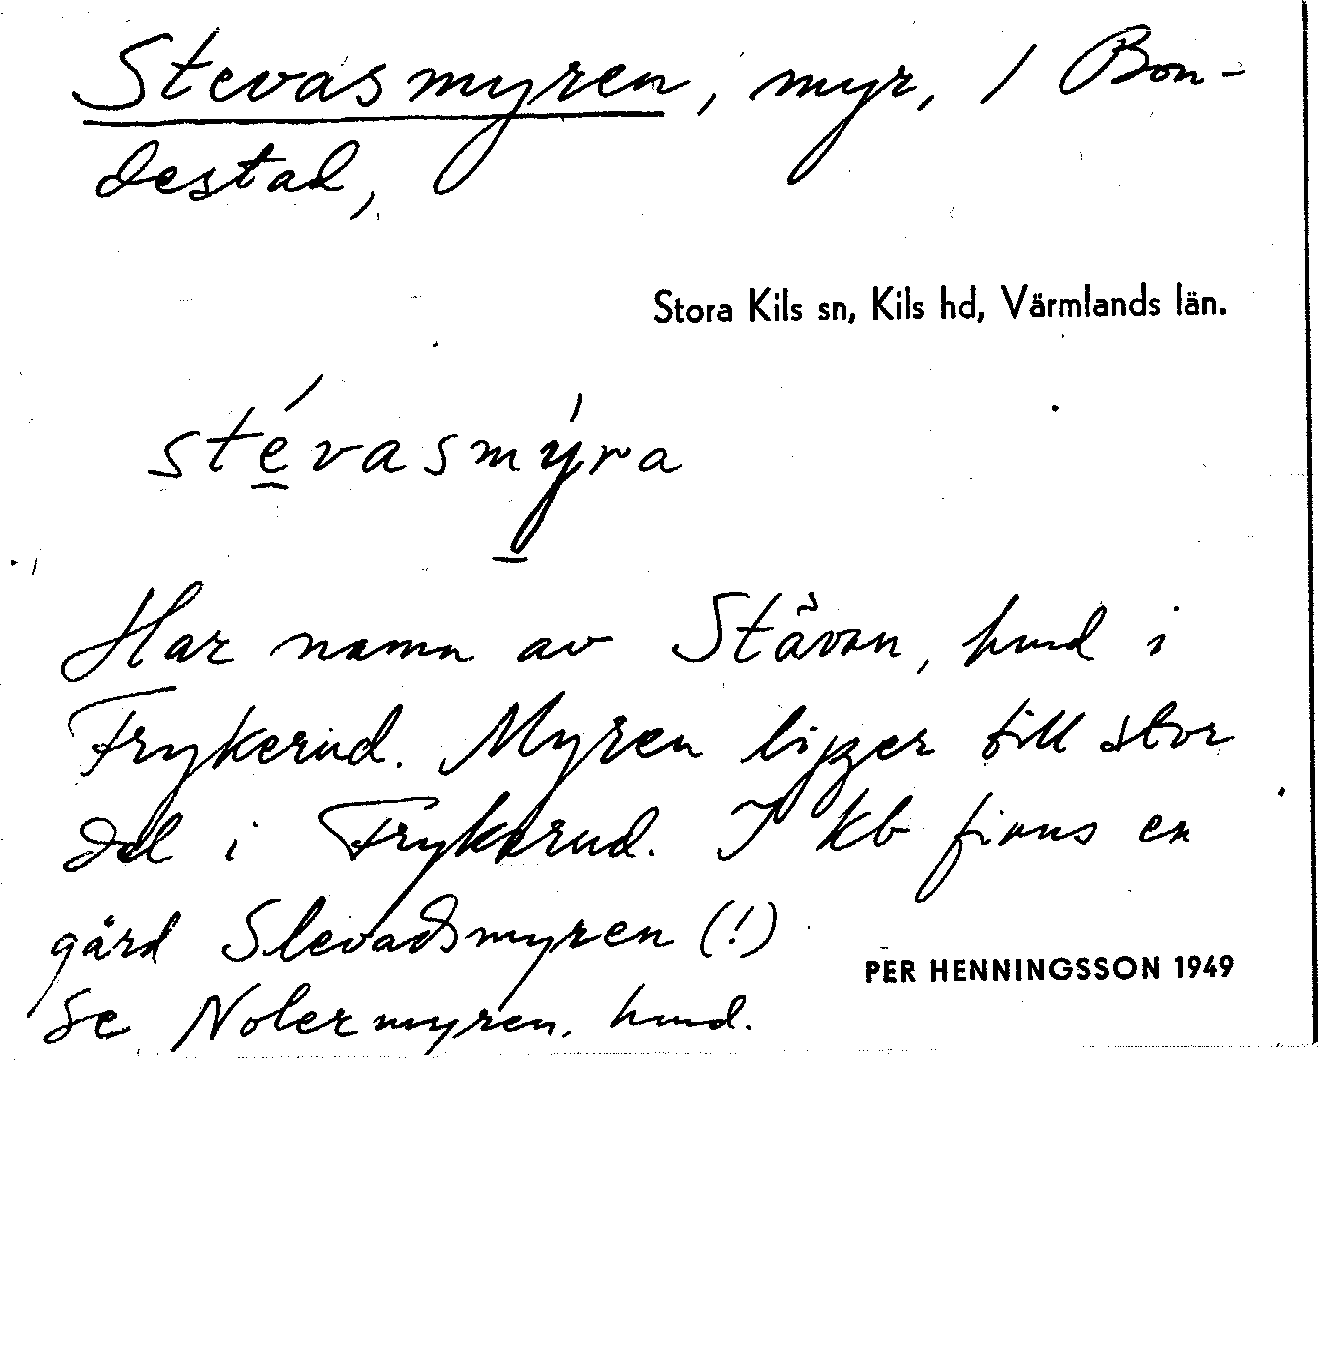 Stevasmyren, myr, 1 Bon-
destad,
Stora Kils sn, Kils hd, Värmlands län.
stévasmýra
Har namn av Stävan, hmd i
Frykerud. Myren ligger till stor
del i Frykerud. I kb finns en
gård Slevadsmyren (!)
PER HENNINGSSON 1949
Se Nolermyren, hmd.